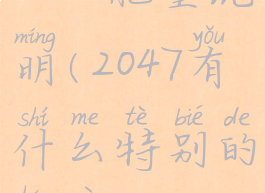 míng yǒu
明(2047有
shí me tè bié de
什么特别的